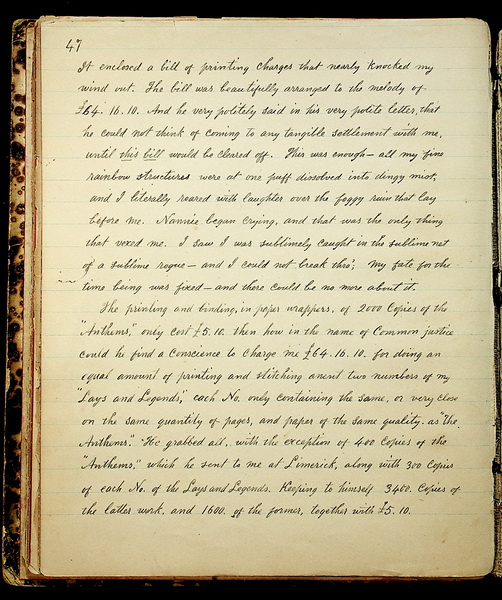 47
It enclosed a bill of printing charges that nearly knocked my
wind out. The bill was beautifully arranged to the melody of
£64. 16. 10. And he very politely said in his very polite letter, that
he could not think of coming to any tangible settlement with me,
until this bill would be cleared off. This was enough - all my fine
rainbow structures were at one puff dissolved into dingy mist,
and I literally roared with laughter over the foggy ruin that lay
before me. Nannie began crying, and that was the only thing
that vexed me. I saw I was sublimely caught in the sublime net
of a sublime rogue - and I could not break thro'; My fate for the
time being was fixed - and there could be no more about it.
The printing and binding, in paper wrappers, of 2000 Copies of the
"Anthems", only cost £5. 10. then how in the name of Common justice
could he find a Conscience to Charge me £64. 16. 10. for doing an
equal amount of printing and stitching anent two numbers of my
"Lays and Legends," each No. only containing the same, or very close
on the same quantity of pages, and paper of the same quality, as "The
Anthems". He grabbed all, with the exception of 400 Copies of the
"Anthems", which he sent to me at Limerick, along with 300 Copies
of each No. of the Lays and Legends. Keeping to himself 3400. Copies of
the latter work, and 1600. of the former, together with £5. 10.